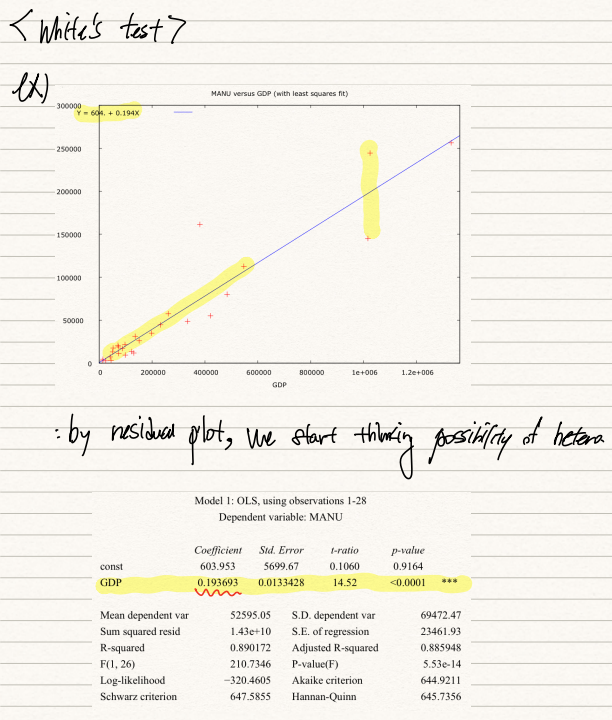 <White's test>
ex)
MANU versus GDP (with least squares fit)
Y = 604. + 0.194X
300000
250000
200000
150000
100000
50000
0
0 200000 400000 600000 800000 1e+006 1.2e+006
GDP
: by residual plot, we start thinking possibility of hetero
Model 1: OLS, using observations 1-28
Dependent variable: MANU
Coefficient Std. Error t-ratio p-value
const 603.953 5699.67 0.1060 0.9164
GDP 0.193693 0.0133428 14.52 <0.0001 ***
Mean dependent var 52595.05 S.D. dependent var 69472.47
Sum squared resid 1.43e+10 S.E. of regression 23461.93
R-squared 0.890172 Adjusted R-squared 0.885948
F(1, 26) 210.7346 P-value(F) 5.53e-14
Log-likelihood −320.4605 Akaike criterion 644.9211
Schwarz criterion 647.5855 Hannan-Quinn 645.7356